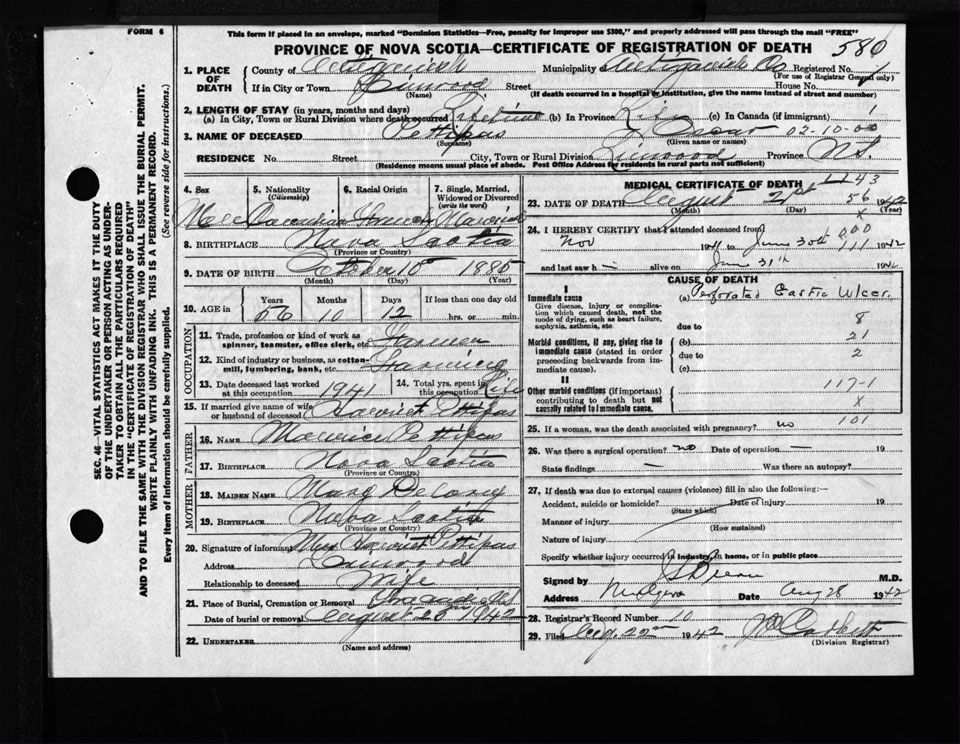 FORM 6
This form if placed in an envelope, marked "Dominion Statistics—Free, penalty for improper use $300," and properly addressed will pass through the mail "FREE"
PROVINCE OF NOVA SCOTIA—CERTIFICATE OF REGISTRATION OF DEATH 580
1. PLACE OF DEATH County of Antigonish Municipality Antigonish Co Registered No. 1
(For use of Registrar General only)
If in City or Town Linwood Street House No.
(Name) (If death occurred in a hospital or institution, give the name instead of street and number)
2. LENGTH OF STAY (in years, months and days)
(a) In City, Town or Rural Division where death occurred Lifetime (b) In Province Life (c) In Canada (if immigrant)
3. NAME OF DECEASED Pettipas Oscar 02-10-00
(Surname) (Given name or names)
RESIDENCE No. Street City, Town or Rural Division Linwood Province N.S.
(Residence means usual place of abode. Post Office Address for Residents in rural parts not sufficient)
4. Sex 5. Nationality (Citizenship) 6. Racial Origin 7. Single, Married, Widowed or Divorced (write the word)
Male Canadian French Married
8. BIRTHPLACE Nova Scotia
(Province or Country)
9. DATE OF BIRTH October 10 1885
(Month) (Day) (Year)
10. AGE in Years Months Days If less than one day old
56 10 12 hrs. or min.
OCCUPATION
11. Trade, profession or kind of work as spinner, teamster, office clerk, etc. Farmer
12. Kind of industry or business, as cotton-mill, lumbering, bank, etc. Farming
13. Date deceased last worked at this occupation 1941 14. Total yrs. spent in this occupation Life
15. If married give name of wife or husband of deceased Harriet Pettipas
FATHER
16. NAME Maurice Pettipas
17. BIRTHPLACE Nova Scotia
(Province or Country)
MOTHER
18. MAIDEN NAME Mary Delorey
19. BIRTHPLACE Nova Scotia
(Province or Country)
20. Signature of informant Mrs Harriet Pettipas
Address Linwood
Relationship to deceased Wife
21. Place of Burial, Cremation or Removal
Date of burial or removal August 23rd 1942
22. UNDERTAKER
(Name and address)
MEDICAL CERTIFICATE OF DEATH 1143
23. DATE OF DEATH August 21st 56
(Month) (Day) (Year)
X
24. I HEREBY CERTIFY that I attended deceased from 000
Nov 1941 to June 30th 911 1942
and last saw h alive on June 31th 1942
CAUSE OF DEATH
I
Immediate cause
Give disease, injury or complication which caused death, not the mode of dying, such as heart failure, asphyxia, asthenia, etc
(a) Perforated Gastric Ulcer
8
due to
Morbid conditions, if any, giving rise to immediate cause (stated in order proceeding backwards from immediate cause).
(b) 21
due to 2
(c)
II
Other morbid conditions (if important) contributing to death but not causally related to immediate cause.
117-1
X
25. If a woman, was the death associated with pregnancy? no 101
26. Was there a surgical operation? no Date of operation — 19
State findings — Was there an autopsy?
27. If death was due to external causes (violence) fill in also the following:—
Accident, suicide or homicide? Date of injury 19
(State which)
Manner of injury
(How sustained)
Nature of injury
Specify whether injury occurred in industry, in home, or in public place
Signed by M.D.
Address Mulgrave Date Aug 28 1942
28. Registrar's Record Number 10
29. Filed Aug 22nd 1942
(Division Registrar)
SEC. 46—VITAL STATISTICS ACT MAKES IT THE DUTY
OF THE UNDERTAKER OR PERSON ACTING AS UNDER-
TAKER TO OBTAIN ALL THE PARTICULARS REQUIRED
IN THE "CERTIFICATE OF REGISTRATION OF DEATH"
AND TO FILE THE SAME WITH THE DIVISION REGISTRAR WHO SHALL ISSUE THE BURIAL PERMIT.
WRITE PLAINLY WITH UNFADING INK. THIS IS A PERMANENT RECORD.
Every item of information should be carefully supplied. (See reverse side for instructions.)